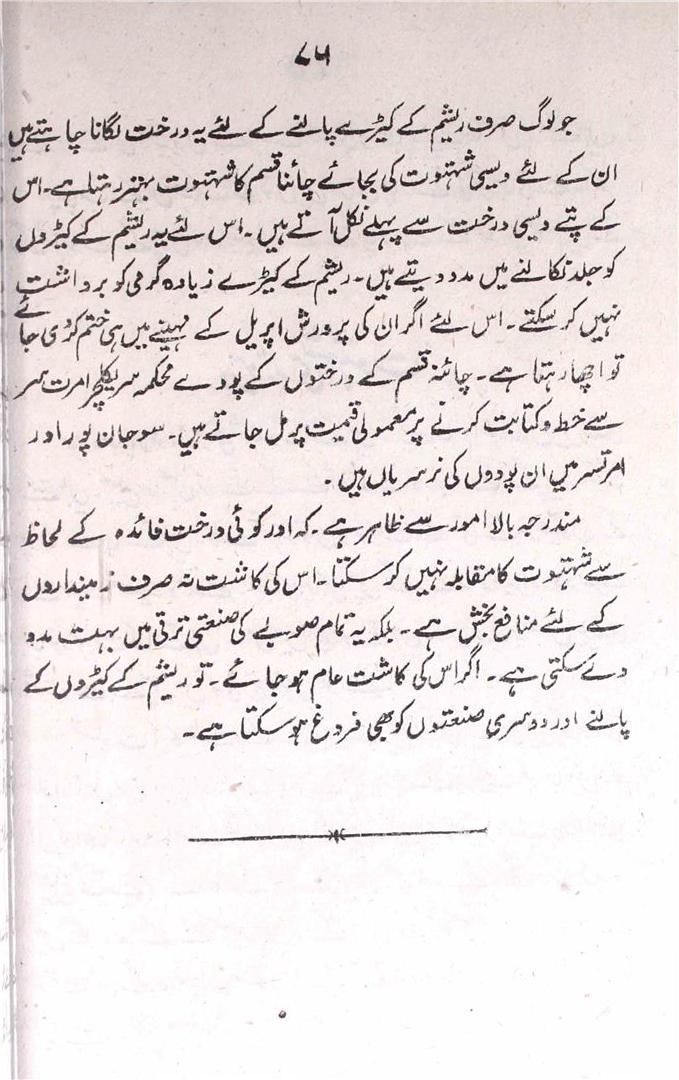 ۸۵
جو لوگ صرف ریشم کے کیڑے پالنے کے لئے یہ درخت لگانا چاہتے ہیں
ان کے لئے دیسی شہتوت کی بجائے چائنا قسم کا شہتوت بہتر رہتا ہے۔ اس
کے پتے دیسی درخت سے پہلے نکل آتے ہیں۔ اس لئے یہ ریشم کے کیڑوں
کو جلد نکالنے میں مدد دیتے ہیں۔ ریشم کے کیڑے زیادہ گرمی کو برداشت
نہیں کر سکتے۔ اس لئے اگر ان کی پرورش اپریل کے مہینے میں ہی ختم کر دی جائے
تو اچھا رہتا ہے۔ چائنہ قسم کے درختوں کے پودے محکمہ سریکلچر امرت سر
سے خط و کتابت کرنے پر معمولی قیمت پر مل جاتے ہیں۔ سوجان پور اور
امرتسر میں ان پودوں کی نرسریاں ہیں۔
مندرجہ بالا امور سے ظاہر ہے۔ کہ اور کوئی درخت فائدہ کے لحاظ
سے شہتوت کا مقابلہ نہیں کر سکتا۔ اس کی کاشت نہ صرف زمینداروں
کے لئے منافع بخش ہے۔ بلکہ یہ تمام صوبے کی صنعتی ترقی میں بہت مدد
دے سکتی ہے۔ اگر اس کی کاشت عام ہو جائے۔ تو ریشم کے کیڑوں کے
پالنے اور دوسری صنعتوں کو بھی فروغ ہو سکتا ہے۔